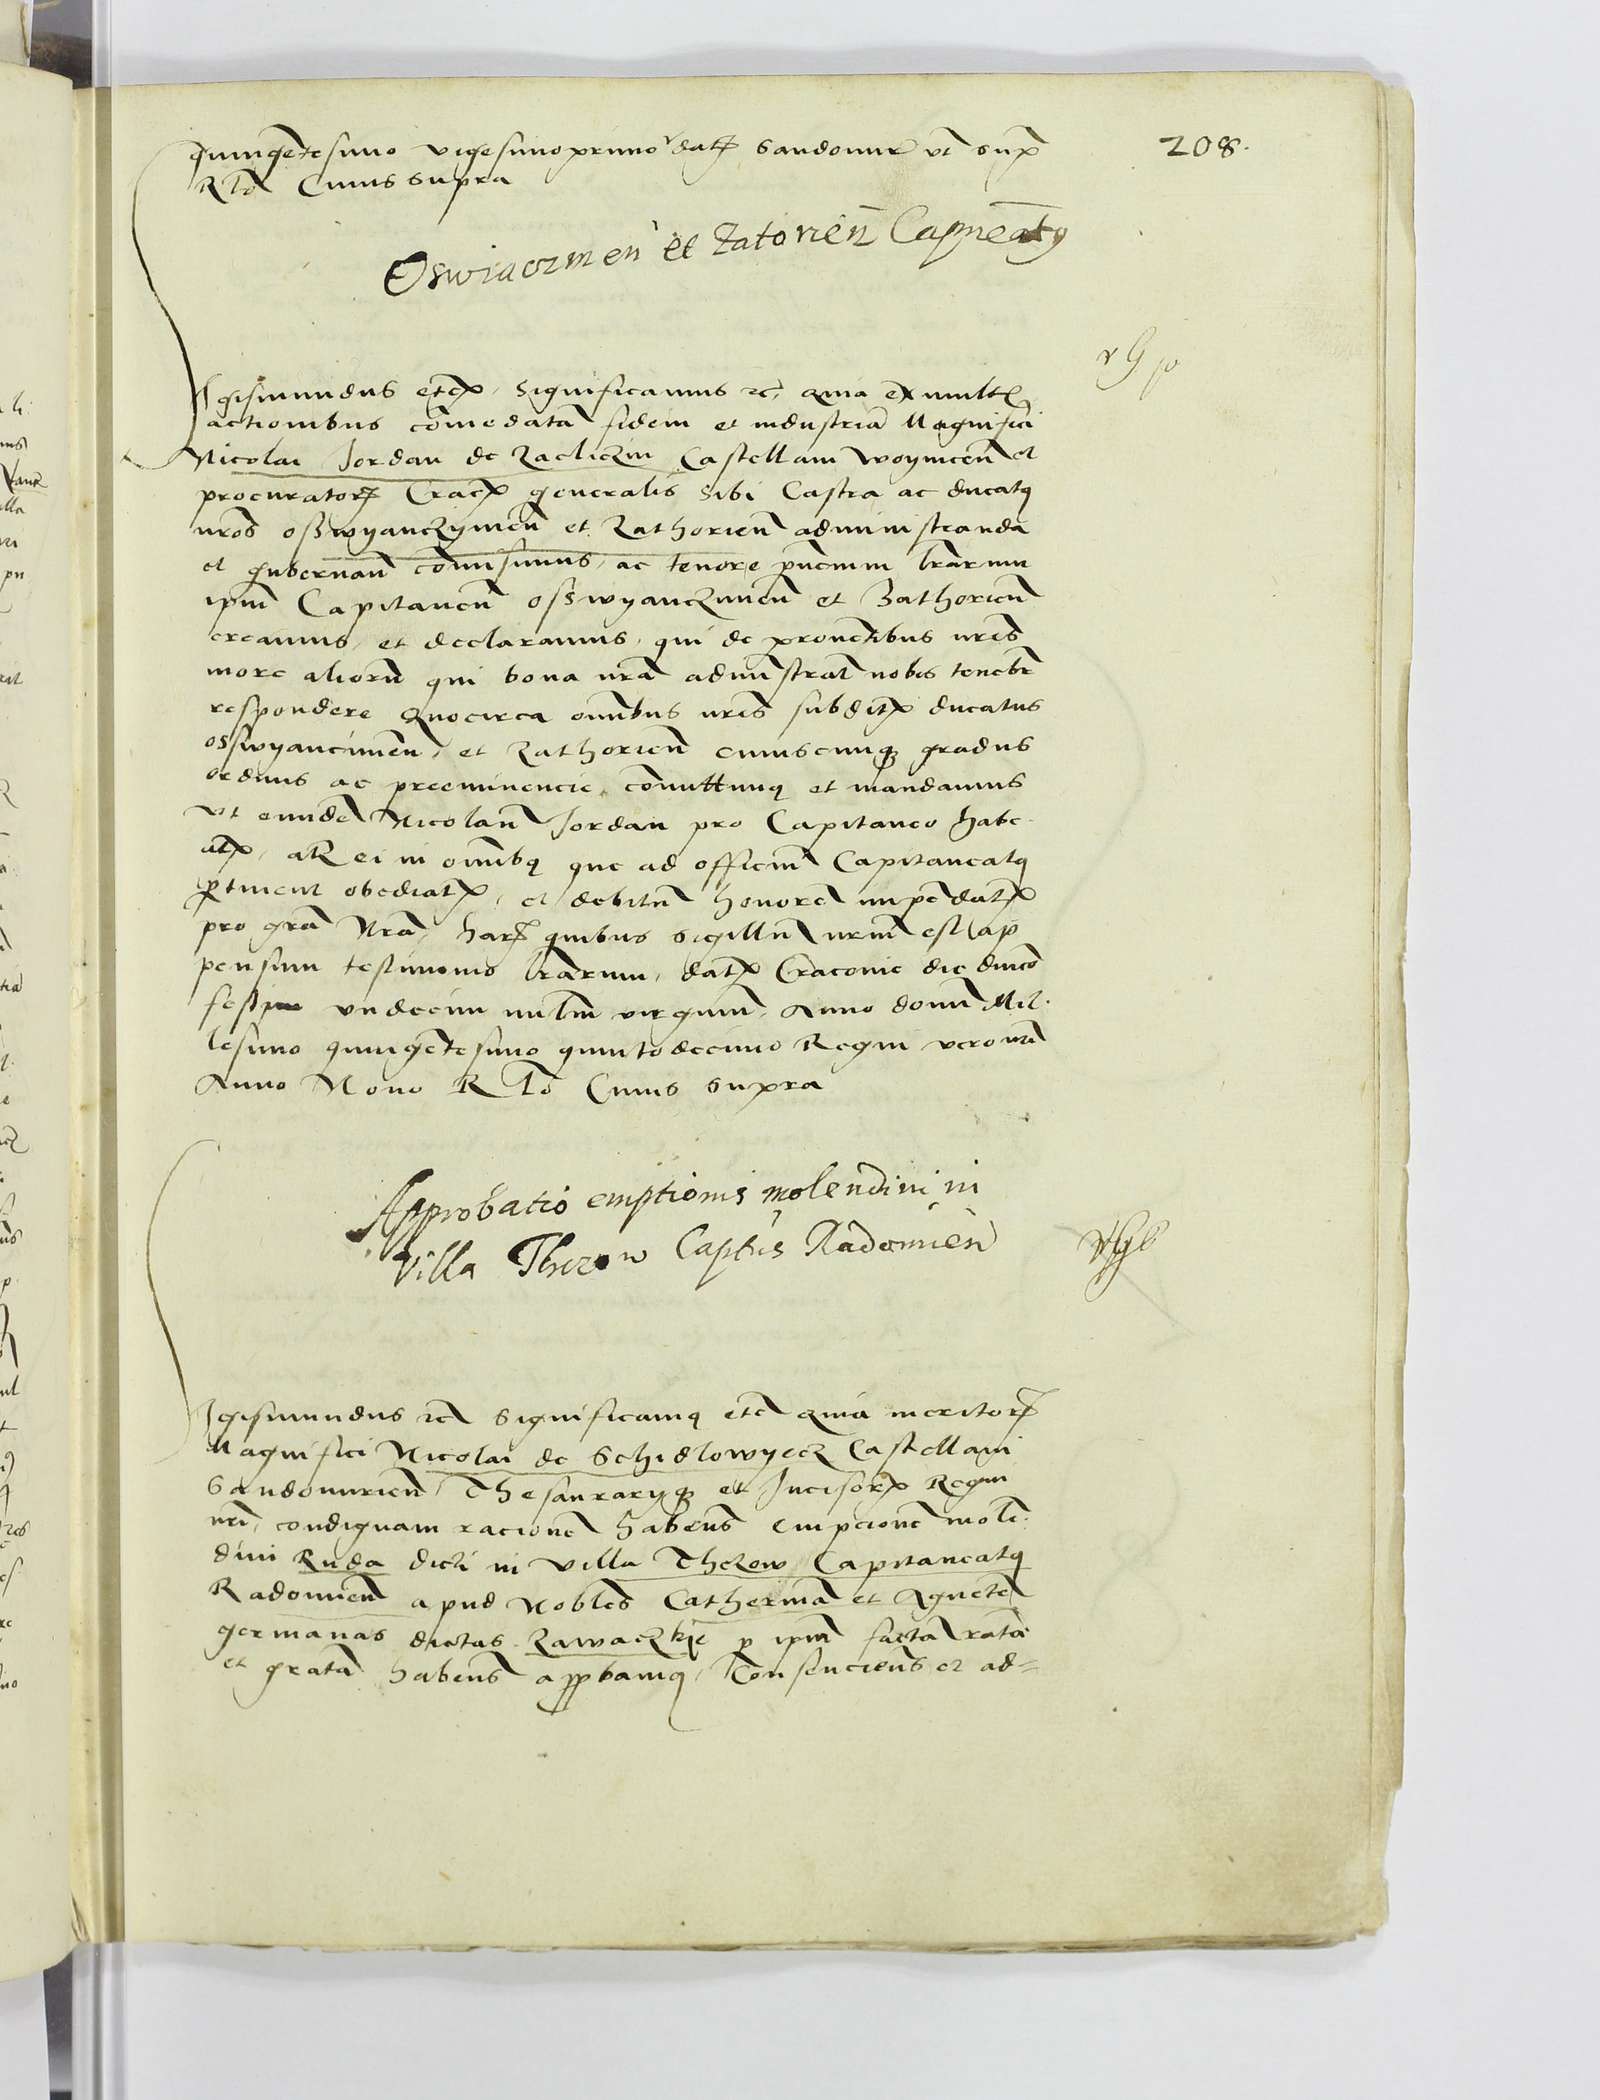 208.
quingẽtesimo vigesimoprimo dat Sandomir vt sup̃
Rlõ Cuius supra
Oswiaczmen et Zatorień Capneatq
Igisimundus etc, Significamus etc, Quia ex mult
actionibus cõmedatã fidem et industriã Magnifici
Nicolai Jordan de Zacliczin Castellani Woynicen̄ et
procurator Crac generalis Sibi Castra ac ducatq
nrõs osswyanczymen̄ et Zathorien̄ administranda
et gubernan̄ cõmisimus, ac tenore pñcium lrãrum
ipm̃ Capitaneũ osswyanczimen̄ et Zathorien̄
creamus, et declaramus, qui de prouentibus nris̃
more aliorũ qui bona nrã administrant nobis tenebr̃
respondere Quocirca omĩbus nris̃ subdit ducatus
osswyancimen̄, et Zathorien̄ cuiuscunq gradus
ordinis ac preeminencie cõmittimq et mandamus
vt eundẽ Nicolaũ Jordan pro Capitaneo habe
at, atq ei in omĩbq que ad officiũ Capitaneatq
ptinent obediat, et debitũ honorẽ impẽdat
pro grã Nrã, har quibus Sigillũ nrm̃ est ap
pensum testimonio lrãrum, dat Cracouie die dnico
festi vndecim milm̃ virginũ, Anno domi Mil
lesimo quingẽtesimo quintodecimo Regni vero nri
Anno Nono Rlõ Cuius supra
Approbatio emptionis molendini in
villa Therzow Captus Radomień
Igisimundus etc Significamq etc Quia meritor
Magnifici Nicolai de Schidlowyecz Castellani
Sandomirien̄ Thesaurarijq et Incisor Regni
nri, condignam racionẽ habens̃ empcionẽ molẽ
dini Ruda dicti in villa Therow Capitaneatq
Radomien̄ apud Nobles̃ Catherinã et Agnetẽ
germanas dictas Zawaczkie p ipm̃ factã ratã
et gratã habens̃ appbamq, Consenciens̃ et ad=